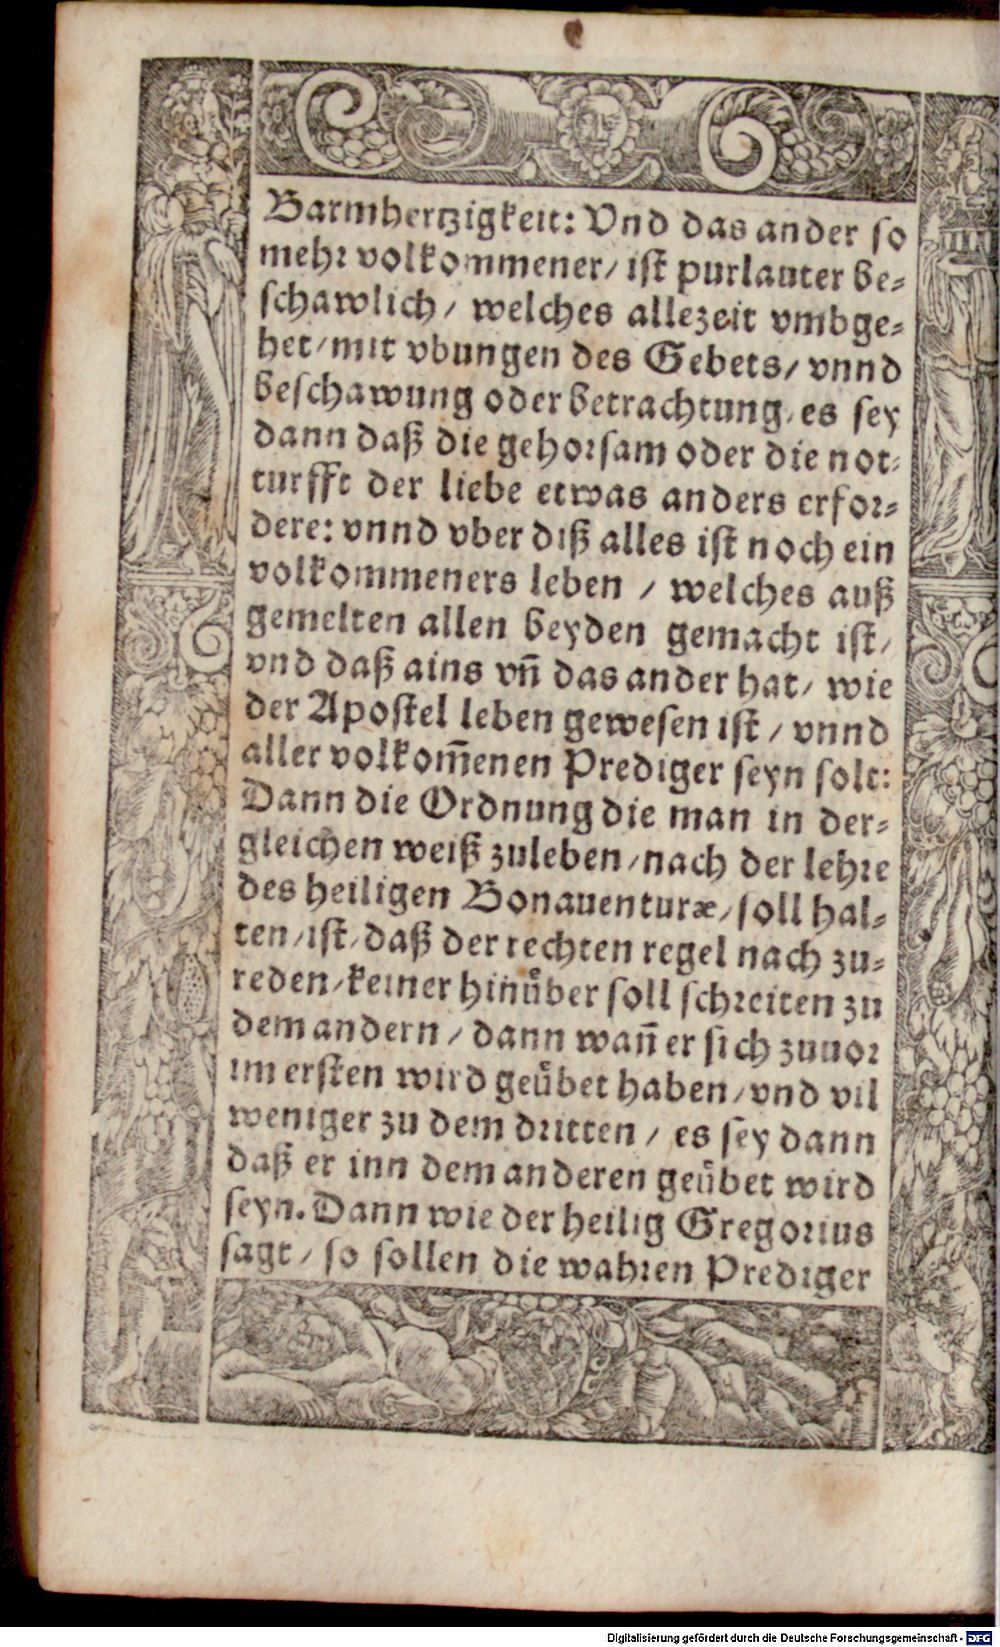 Barmhertzigkeit: Vnd das ander so
mehr volkommener/ ist purlauter be⸗
schawlich/ welches allezeit vmbge⸗
het/ mit vbungen des Gebets/ vnnd
beschawung oder betrachtung/ es sey
dann daß die gehorsam oder die not⸗
turfft der liebe etwas anders erfor⸗
dere: vnnd vber diß alles ist noch ein
volkommeners leben / welches auß
gemelten allen beyden gemacht ist/
vnd daß ains vñ das ander hat/ wie
der Apostel leben gewesen ist / vnnd
aller volkom̃enen Prediger seyn solt:
Dann die Ordnung die man in der⸗
gleichen weiß zuleben/ nach der lehre
des heiligen Bonauenturæ/ soll hal⸗
ten/ ist/ daß der rechten regel nach zu⸗
reden/ keiner hinüber soll schreiten zu
dem andern / dann wañ er sich zuuor
im ersten wird geübet haben/ vnd vil
weniger zu dem dritten / es sey dann
daß er inn dem anderen geübet wird
seyn. Dann wie der heilig Gregorius
sagt / so sollen die wahren Prediger
Digitalisierung gefördert durch die Deutsche Forschungsgemeinschaft - DFG